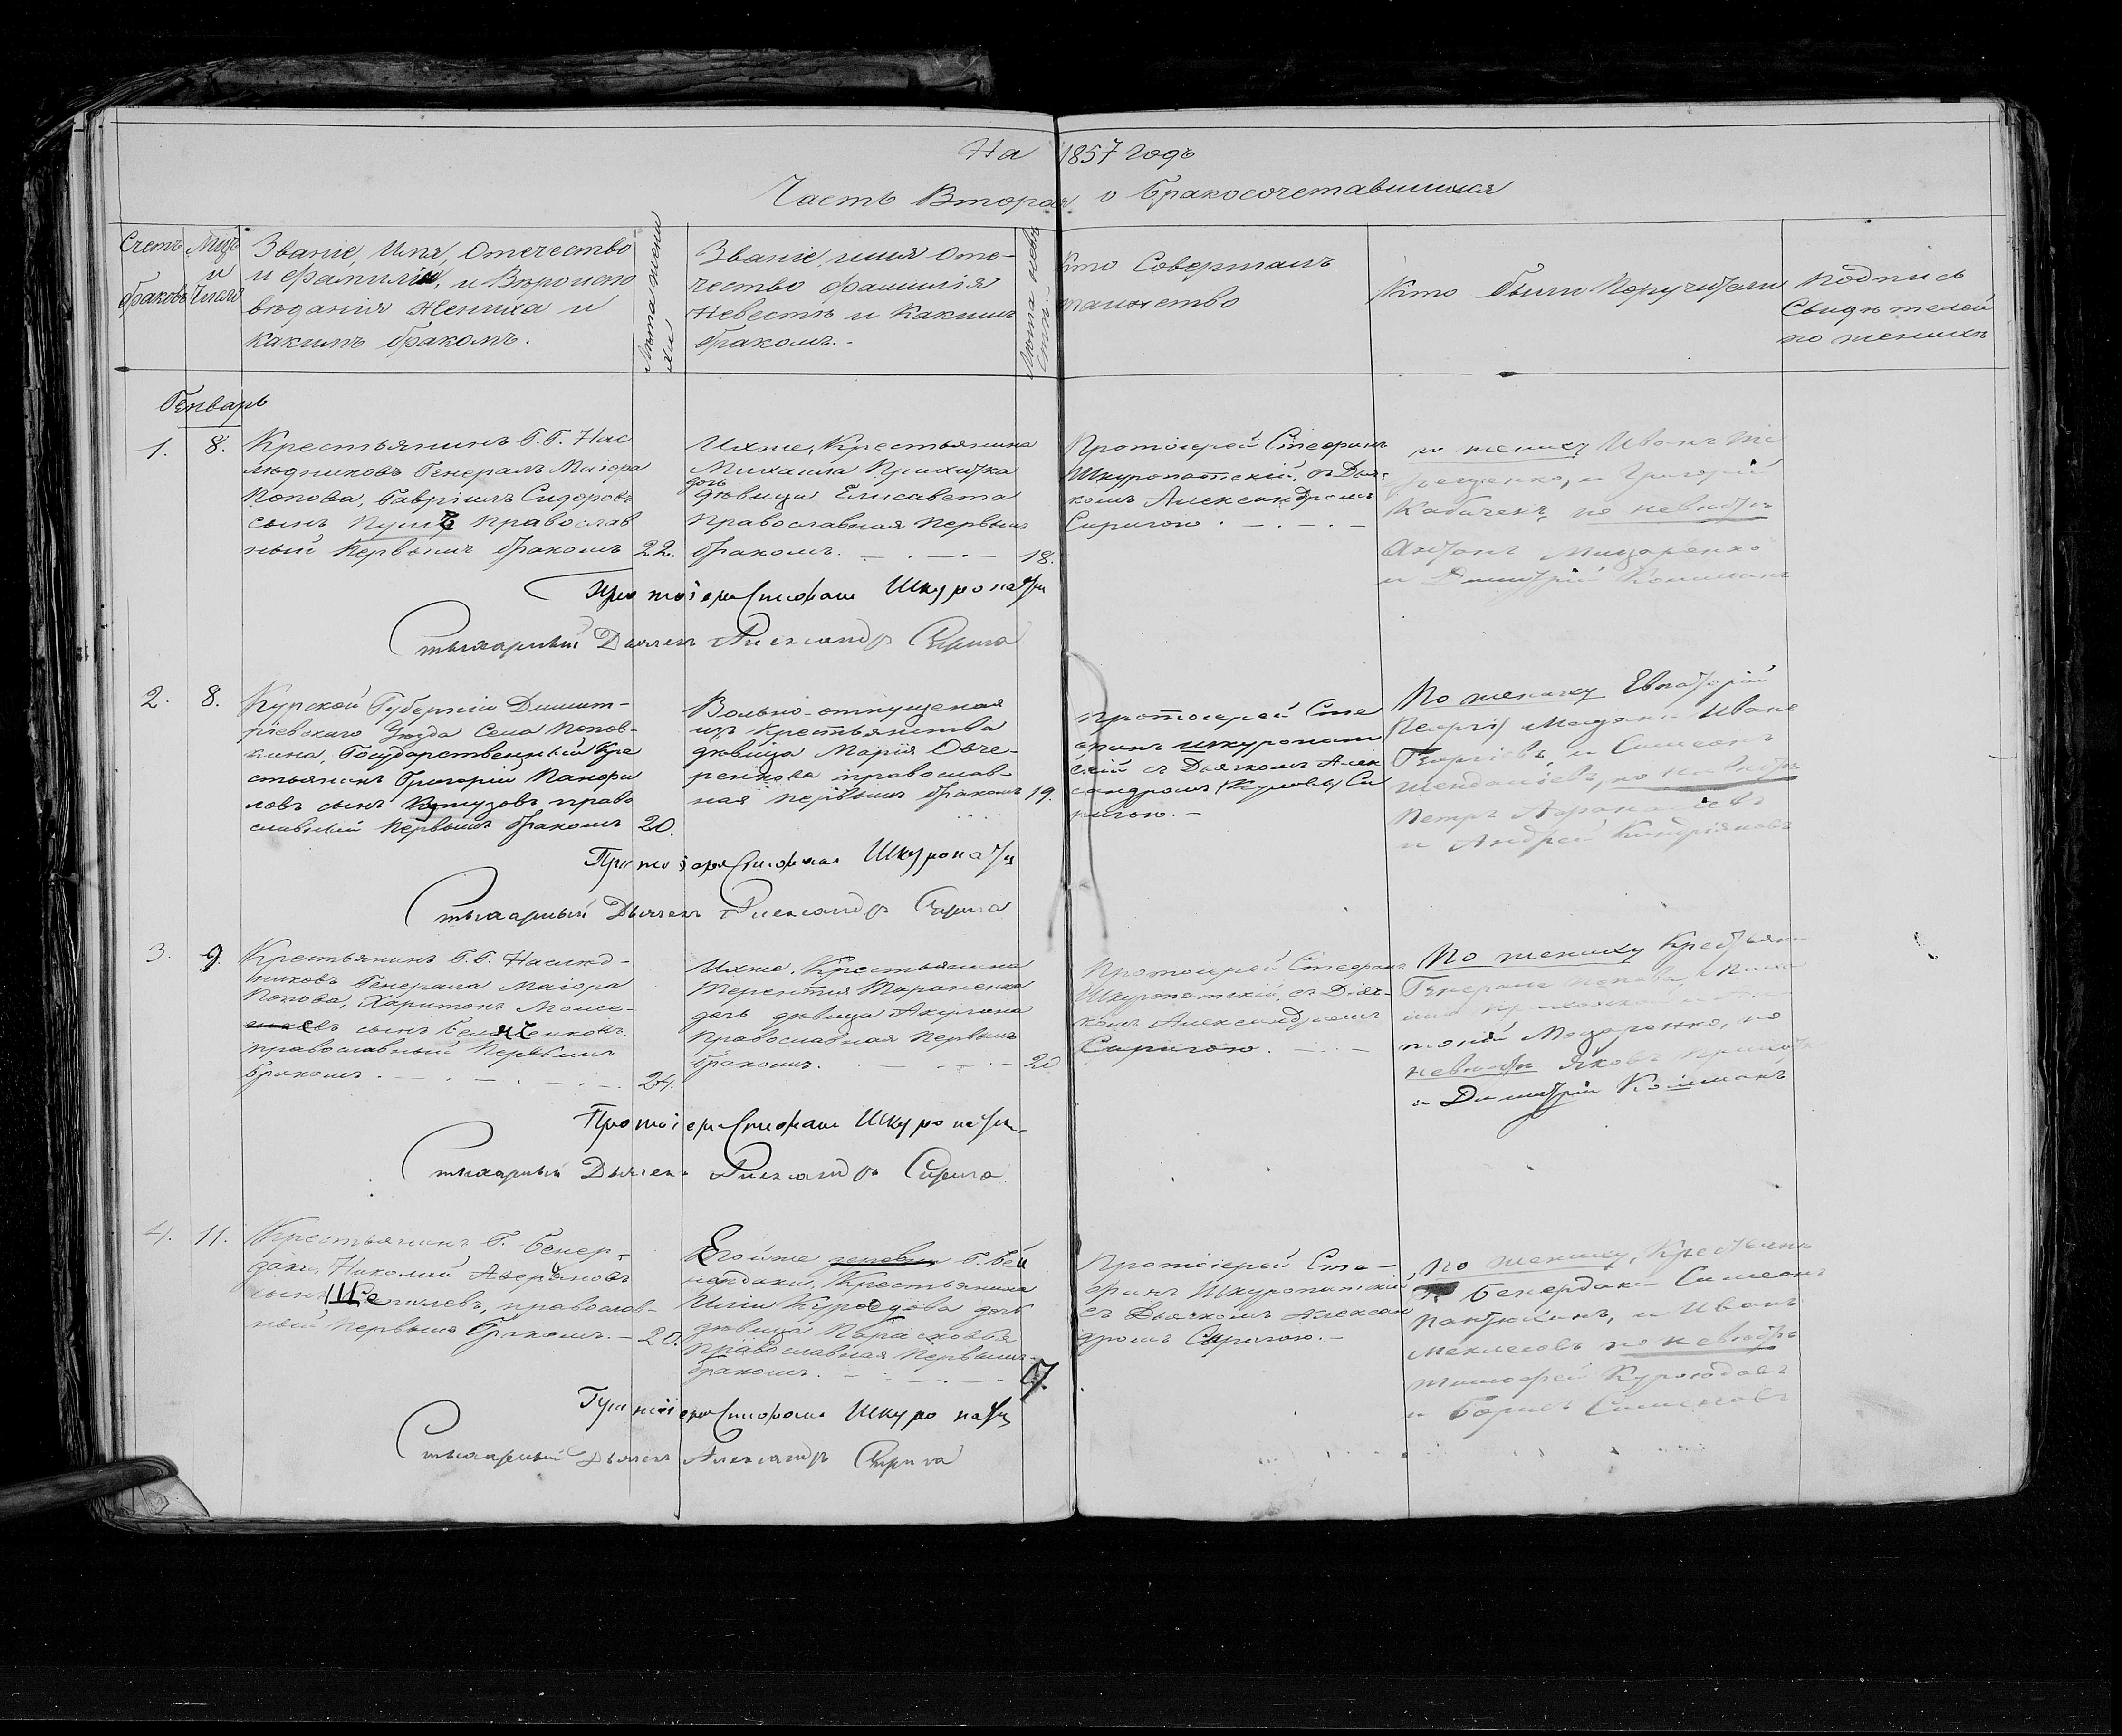 На 1857 Годъ
Часть Вторая о Бракосочетавшихся
Счетъ браковъ
Мцъ и Число
Званіе, Имя, Отечество
и фамилія, и Вѣроиспо
вѣданія Жениха и
какимъ бракомъ.
Лѣта жени
ха
Званіе имя Оте-
чество фамилія
Невестѣ и Какимъ
бракомъ.-
Лѣта невѣ
сты.-
Кто Совершалъ
таинство
Кто были Поручители
Подпись
Свидѣтелей
по женихѣ
Генварь
1. 8.
Крестьянинъ Г.Г. Нас
лѣдниковъ Генералъ Маіора
Попова, Гавріилъ Сидоровъ
сынъ православ
ный Первымъ бракомъ 22.
Ихже, Крестьянина
Михаила
дочь
дѣвица Елисавета
Православная Первымъ
бракомъ. - . - . - 18.
Протоіерей Стефанъ
Шкуропатскій, съ Дья-
комъ Александромъ
Сиригою . - . - . -
по жениху Иванъ
и Григорій
по невѣстѣ
Антонъ
и Димитрій
Протоіерей Стефанъ Шкуропатскій
Стихарный Дьячекъ Александръ Сирига
2. 8.
Курской Губерніи Димит-
ріевскаго Уѣзда Села Попов-
кина, Государственный Кре
стьянинъ Григорій Панфи
ловъ сынъ Кутузовъ право
славный Первымъ бракомъ 20.
Вольно-отпущеная
изъ Крестьянства
дѣвица Марія Овче-
ренкова православ-
ная первымъ бракомъ 19.
Протоіерей Сте
фанъ Шкуропат
скій съ Дьячкомъ Алек
сандромъ Си
ригою.-
По жениху Евпаторій
Иванъ
Георгіевъ, и Симеонъ
по невѣстѣ
Петръ Афанасіевъ
и Андрей
Протоіерей Стефанъ Шкуропатскій
Стихарный Дьячекъ Александръ Сирига
3. 9.
Крестьянинъ Г.Г. Наслѣд-
никовъ Генерала Маіора
Попова, Харитонъ Моисе-
евъ сынъ
православный Первымъ
бракомъ . - . - . - . - . 24.
Ихже, Крестьянина
Терентія Тараненка
дочь дѣвица Акулина
Православная Первымъ
бракомъ. . - . - . - 20
Протоіерей Стефанъ
Шкуропатскій, съ Дьяч-
комъ Александромъ
Сиригою . - . -
По жениху Крестьяне
Генерала Попова,
по
невѣстѣ Яковъ
и Димитрій
Протоіерей Стефанъ Шкуропатскій
Стихарный Дьячекъ Александръ Сирига
4. 11.
Крестьянинъ Г. Бенар-
даки, Николай Аверьяновъ
сынъ православ-
ный первымъ бракомъ. - 20.
Его же Г. Бен
ардаки, Крестьянина
Иліи Куроедова дочь
дѣвица Парасковья
православная Первымъ
бракомъ. - . - . -
Протоіерей Сте-
фанъ Шкуропатскій,
съ Дьячкомъ Алексан
дромъ Сиригою.-
По жениху, Крестьяне
Г. Бенардаки Симеонъ
и Иванъ
по невѣстѣ
Тимофей Куроедовъ
и Борисъ
Протоіерей Стефанъ Шкуропатскій
Стихарный Дьячекъ Александръ Сирига